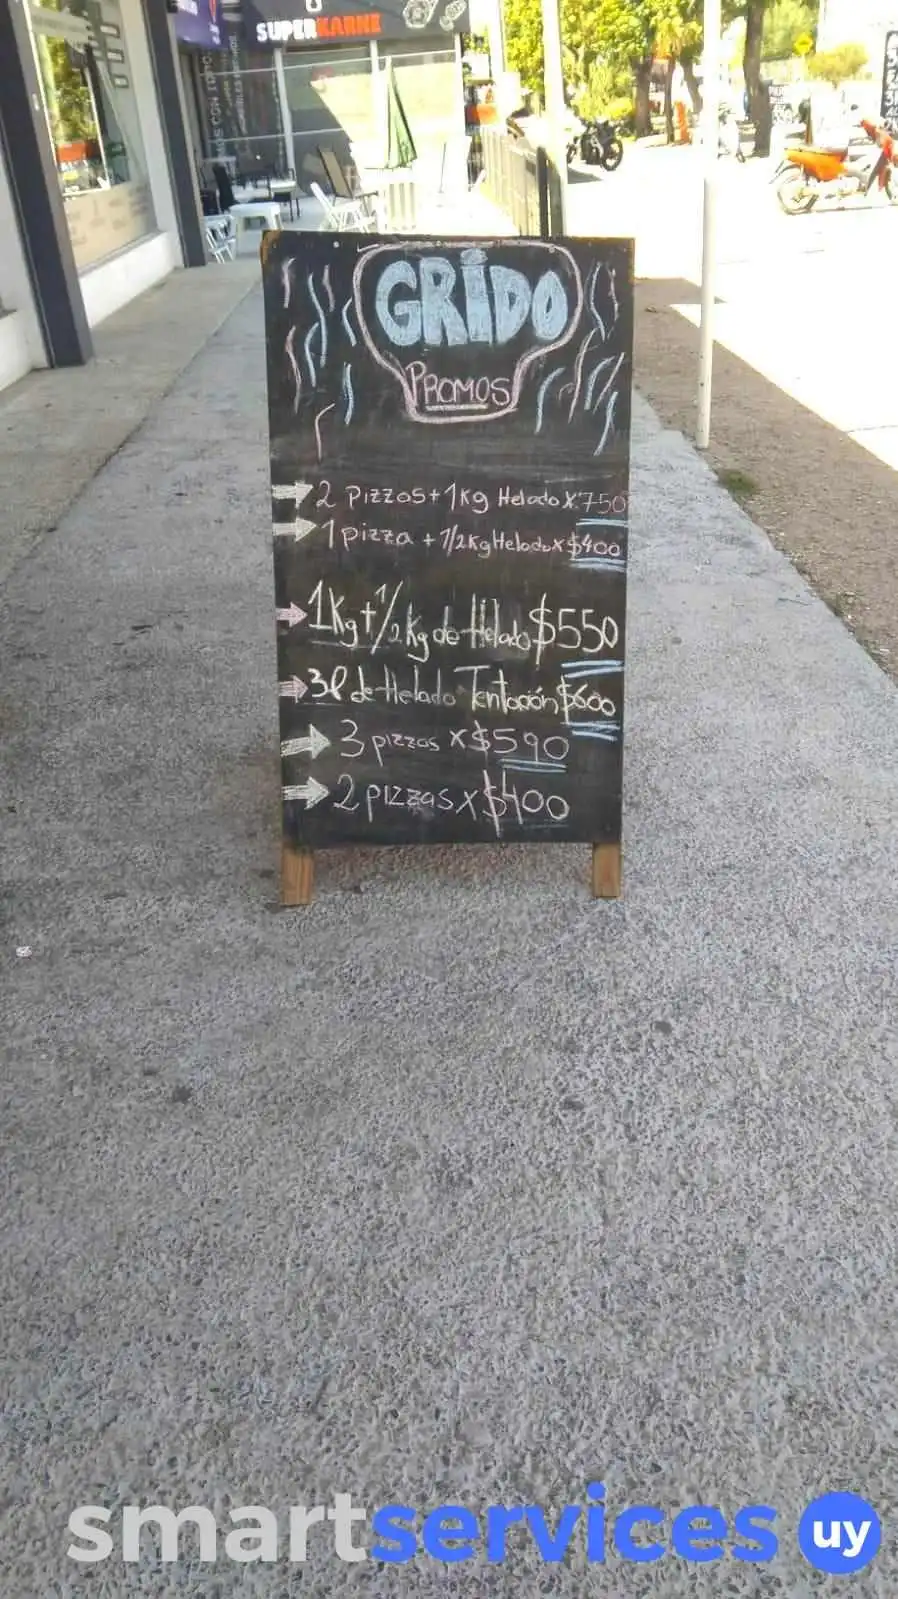 SUPERKARNE
GRIDO
PROMOS
2 Pizzas + 1Kg Helado X 750
1 pizza + 1/2 Kg Helado x $400
1Kg + 1/2 Kg de Helado $550
3l de Helado Tentación $600
3 pizzas X $590
2 pizzas x $400
smartservices uy